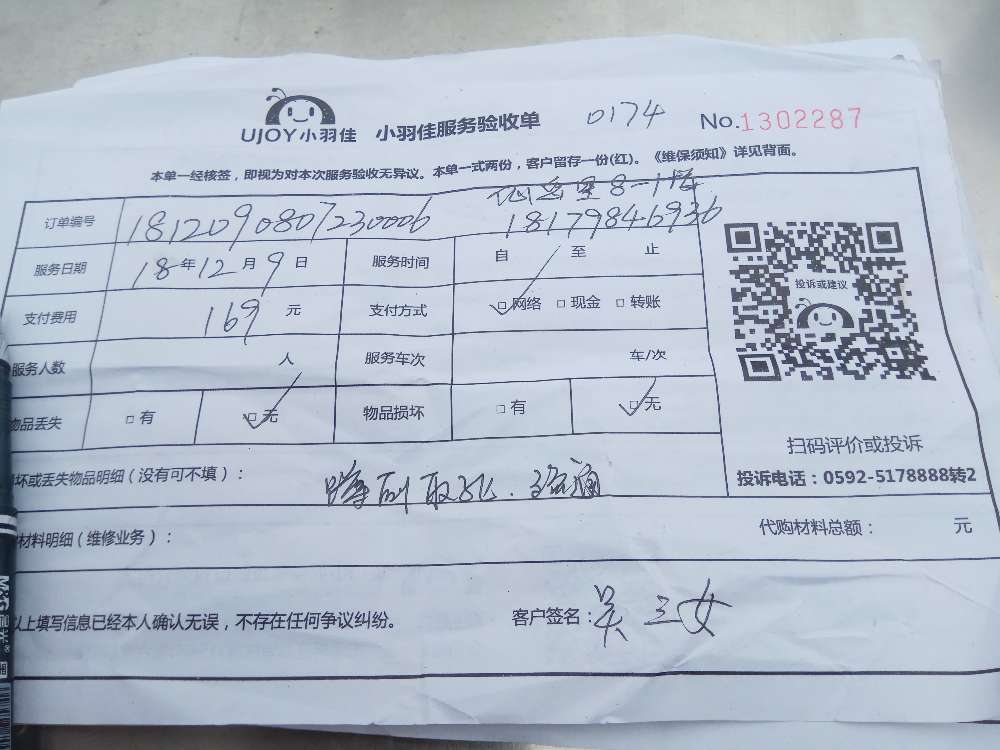 UJOY小羽佳 小羽佳服务验收单 0174 No.1302287
本单一经核签，即视为对本次服务验收无异议。本单一式两份，客户留存一份(红)。《维保须知》详见背面。
仙岳里8-1
订单编号 1812090807230006 18179846936
服务日期 18年12月9日 服务时间 自 至 止
投诉或建议
支付费用 169 元 支付方式 □网络 □现金 □转账
服务人数 人 服务车次 车/次
物品丢失 □有 □无 物品损坏 □有 □无
扫码评价或投诉
坏或丢失物品明细（没有可不填）：
投诉电话：0592-5178888转2
材料明细（维修业务）： 代购材料总额： 元
以上填写信息已经本人确认无误，不存在任何争议纠纷。 客户签名：吴三女
M&G晨光